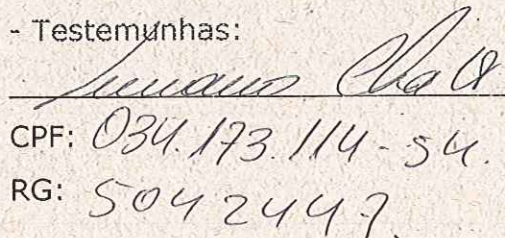 - Testemunhas:
Luciano
CPF: 034.173.114-54.
RG: 5042447.